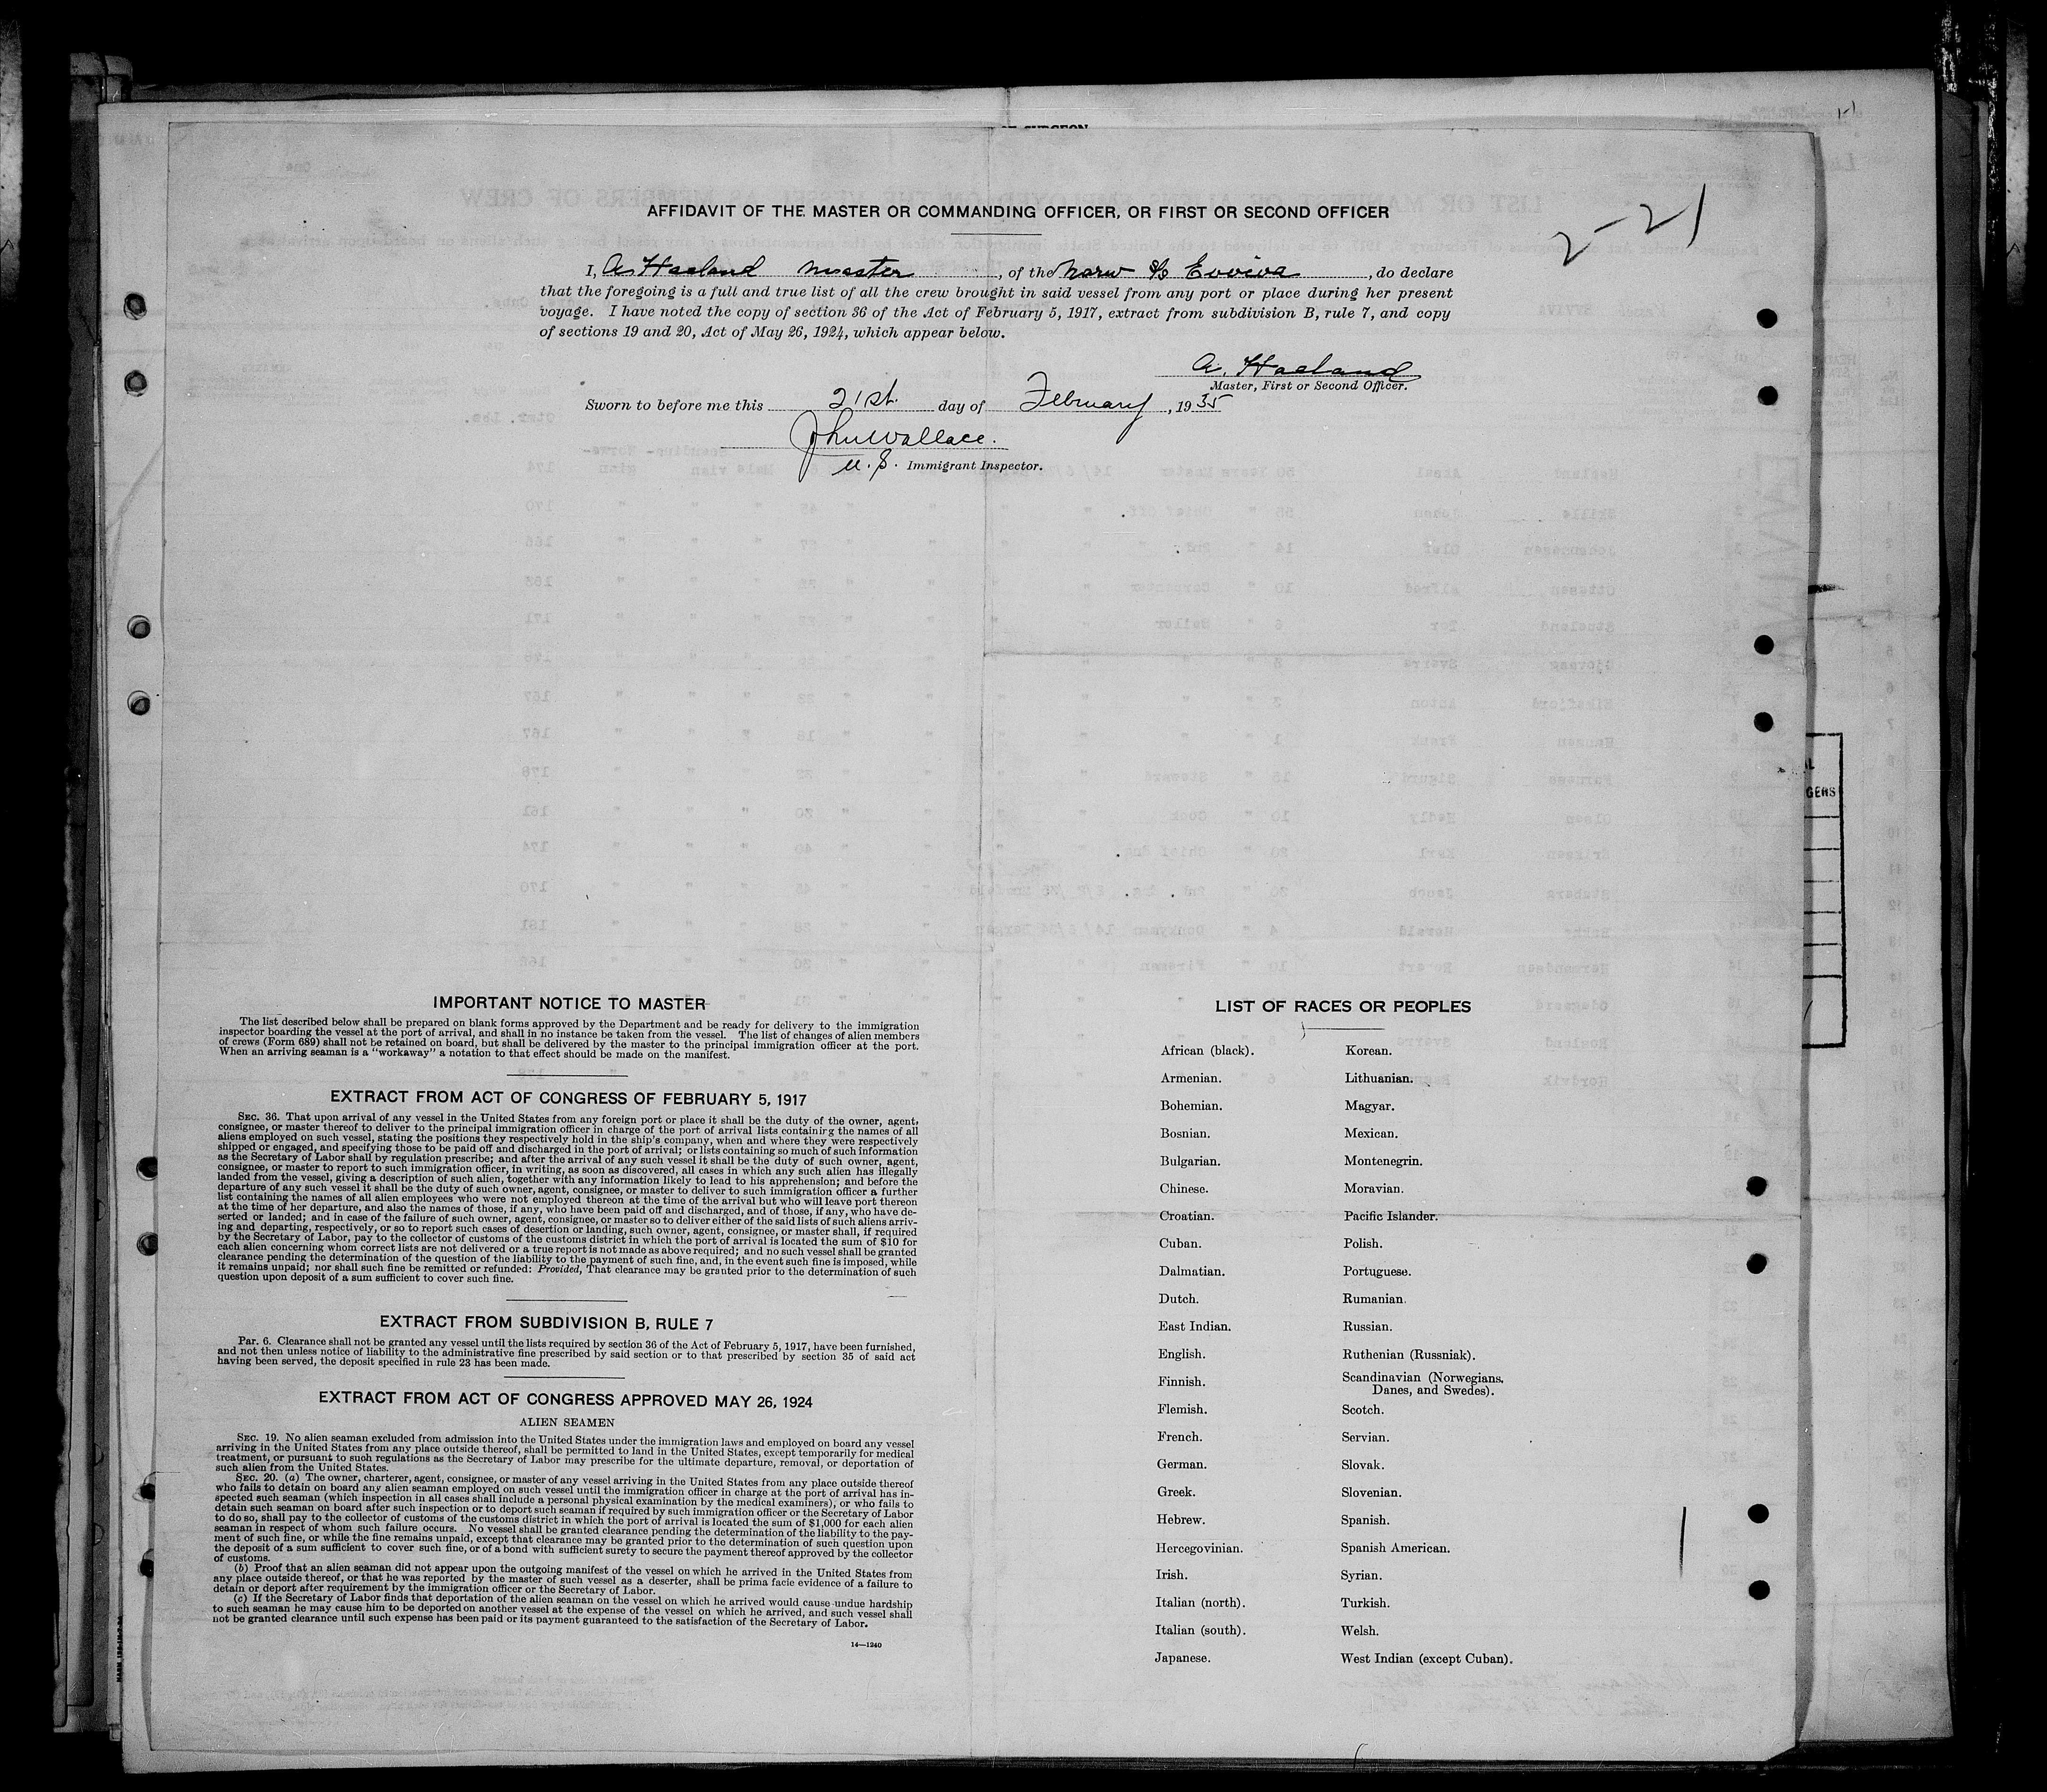 OF SURGEON
AFFIDAVIT OF THE MASTER OR COMMANDING OFFICER, OR FIRST OR SECOND OFFICER
2-21
I, A. Haeland master, of the Norw S/S Evviva, do declare
that the foregoing is a full and true list of all the crew brought in said vessel from any port or place during her present
voyage. I have noted the copy of section 36 of the Act of February 5, 1917, extract from subdivision B, rule 7, and copy
of sections 19 and 20, Act of May 26, 1924, which appear below.
A. Haeland
Master, First or Second Officer.
Sworn to before me this 21st. day of February, 1935
John Wallace.
U.S. Immigrant Inspector.
IMPORTANT NOTICE TO MASTER
The list described below shall be prepared on blank forms approved by the Department and be ready for delivery to the immigration
inspector boarding the vessel at the port of arrival, and shall in no instance be taken from the vessel. The list of changes of alien members
of crews (Form 689) shall not be retained on board, but shall be delivered by the master to the principal immigration officer at the port.
When an arriving seaman is a "workaway" a notation to that effect should be made on the manifest.
EXTRACT FROM ACT OF CONGRESS OF FEBRUARY 5, 1917
SEC. 36. That upon arrival of any vessel in the United States from any foreign port or place it shall be the duty of the owner, agent,
consignee, or master thereof to deliver to the principal immigration officer in charge of the port of arrival lists containing the names of all
aliens employed on such vessel, stating the positions they respectively hold in the ship's company, when and where they were respectively
shipped or engaged, and specifying those to be paid off and discharged in the port of arrival; or lists containing so much of such information
as the Secretary of Labor shall by regulation prescribe; and after the arrival of any such vessel it shall be the duty of such owner, agent,
consignee, or master to report to such immigration officer, in writing, as soon as discovered, all cases in which any such alien has illegally
landed from the vessel, giving a description of such alien, together with any information likely to lead to his apprehension; and before the
departure of any such vessel it shall be the duty of such owner, agent, consignee, or master to deliver to such immigration officer a further
list containing the names of all alien employees who were not employed thereon at the time of the arrival but who will leave port thereon
at the time of her departure, and also the names of those, if any, who have been paid off and discharged, and of those, if any, who have de-
serted or landed; and in case of the failure of such owner, agent, consignee, or master so to deliver either of the said lists of such aliens arriv-
ing and departing, respectively, or so to report such cases of desertion or landing, such owner, agent, consignee, or master shall, if required
by the Secretary of Labor, pay to the collector of customs of the customs district in which the port of arrival is located the sum of $10 for
each alien concerning whom correct lists are not delivered or a true report is not made as above required; and no such vessel shall be granted
clearance pending the determination of the question of the liability to the payment of such fine, and, in the event such fine is imposed, while
it remains unpaid; nor shall such fine be remitted or refunded: Provided, That clearance may be granted prior to the determination of such
question upon deposit of a sum sufficient to cover such fine.
EXTRACT FROM SUBDIVISION B, RULE 7
PAR. 6. Clearance shall not be granted any vessel until the lists required by section 36 of the Act of February 5, 1917, have been furnished,
and not then unless notice of liability to the administrative fine prescribed by said section or to that prescribed by section 35 of said act
having been served, the deposit specified in rule 23 has been made.
EXTRACT FROM ACT OF CONGRESS APPROVED MAY 26, 1924
ALIEN SEAMEN
SEC. 19. No alien seaman excluded from admission into the United States under the immigration laws and employed on board any vessel
arriving in the United States from any place outside thereof, shall be permitted to land in the United States, except temporarily for medical
treatment, or pursuant to such regulations as the Secretary of Labor may prescribe for the ultimate departure, removal, or deportation of
such alien from the United States.
SEC. 20. (a) The owner, charterer, agent, consignee, or master of any vessel arriving in the United States from any place outside thereof
who fails to detain on board any alien seaman employed on such vessel until the immigration officer in charge at the port of arrival has in-
spected such seaman (which inspection in all cases shall include a personal physical examination by the medical examiners), or who fails to
detain such seaman on board after such inspection or to deport such seaman if required by such immigration officer or the Secretary of Labor
to do so, shall pay to the collector of customs of the customs district in which the port of arrival is located the sum of $1,000 for each alien
seaman in respect of whom such failure occurs. No vessel shall be granted clearance pending the determination of the liability to the pay-
ment of such fine, or while the fine remains unpaid, except that clearance may be granted prior to the determination of such question upon
the deposit of a sum sufficient to cover such fine, or of a bond with sufficient surety to secure the payment thereof approved by the collector
of customs.
(b) Proof that an alien seaman did not appear upon the outgoing manifest of the vessel on which he arrived in the United States from
any place outside thereof, or that he was reported by the master of such vessel as a deserter, shall be prima facie evidence of a failure to
detain or deport after requirement by the immigration officer or the Secretary of Labor.
(c) If the Secretary of Labor finds that deportation of the alien seaman on the vessel on which he arrived would cause undue hardship
to such seaman he may cause him to be deported on another vessel at the expense of the vessel on which he arrived, and such vessel shall
not be granted clearance until such expense has been paid or its payment guaranteed to the satisfaction of the Secretary of Labor.
14—1240
LIST OF RACES OR PEOPLES
African (black). Korean.
Armenian. Lithuanian.
Bohemian. Magyar.
Bosnian. Mexican.
Bulgarian. Montenegrin.
Chinese. Moravian.
Croatian. Pacific Islander.
Cuban. Polish.
Dalmatian. Portuguese.
Dutch. Rumanian.
East Indian. Russian.
English. Ruthenian (Russniak).
Finnish. Scandinavian (Norwegians,
Danes, and Swedes).
Flemish. Scotch.
French. Servian.
German. Slovak.
Greek. Slovenian.
Hebrew. Spanish.
Hercegovinian. Spanish American.
Irish. Syrian.
Italian (north). Turkish.
Italian (south). Welsh.
Japanese. West Indian (except Cuban).